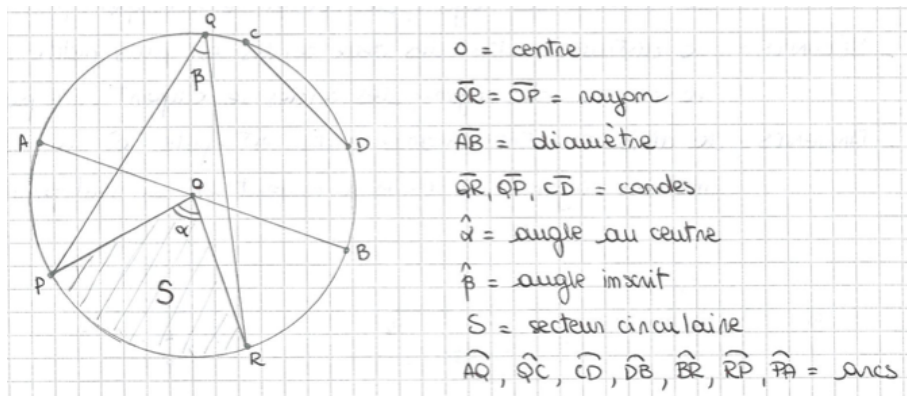 Q
C
β
A
D
O
α
B
P
S
R
O = centre
O̅R̅ = O̅P̅ = rayon
A̅B̅ = diamètre
Q̅R̅, Q̅P̅, C̅D̅ = cordes
α̂ = angle au centre
β̂ = angle inscrit
S = secteur circulaire
A͡Q, Q͡C, C͡D, D͡B, B͡R, R͡P, P͡A = arcs